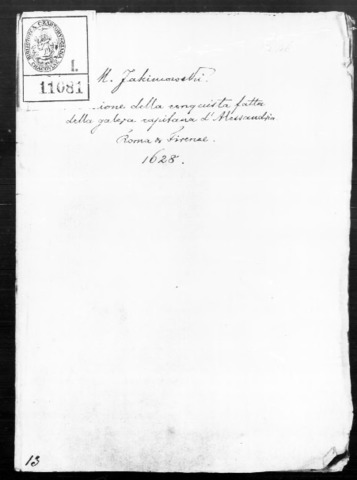 BIBLIOTHECA CZARTORYSKIANA
I.
11081
M. Jakimowski.
...ione della conquista fatta
della galera capitana d'Alessandria
Roma & Firenze.
1628.
13